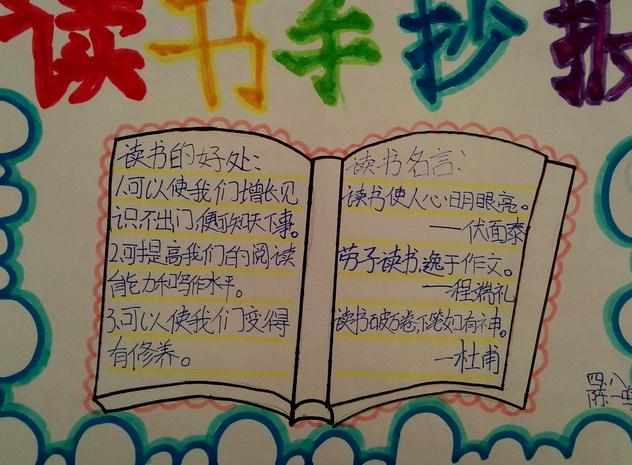 读书手抄报
读书的好处:
1.可以使我们增长见
识,不出门,便可知天下事。
2.可提高我们的阅读
能力和写作水平。
3.可以使我们变得
有修养。
读书名言:
读书使人心明眼亮。
——伏面泰
劳于读书,逸于作文。
——程端礼
读书破万卷,下笔如有神。
—杜甫
四八
陈一